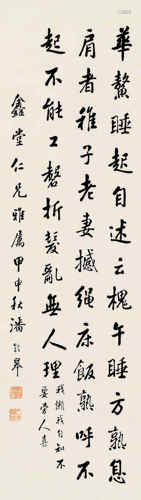 華鰲睡起自述云槐午睡方熟息
肩者稚子老妻撼绳床飯熟呼不
起不能工磬折髮亂無人理
我懶我自知不
要旁人喜
鑫堂仁兄雅屬甲申秋潘齡皋